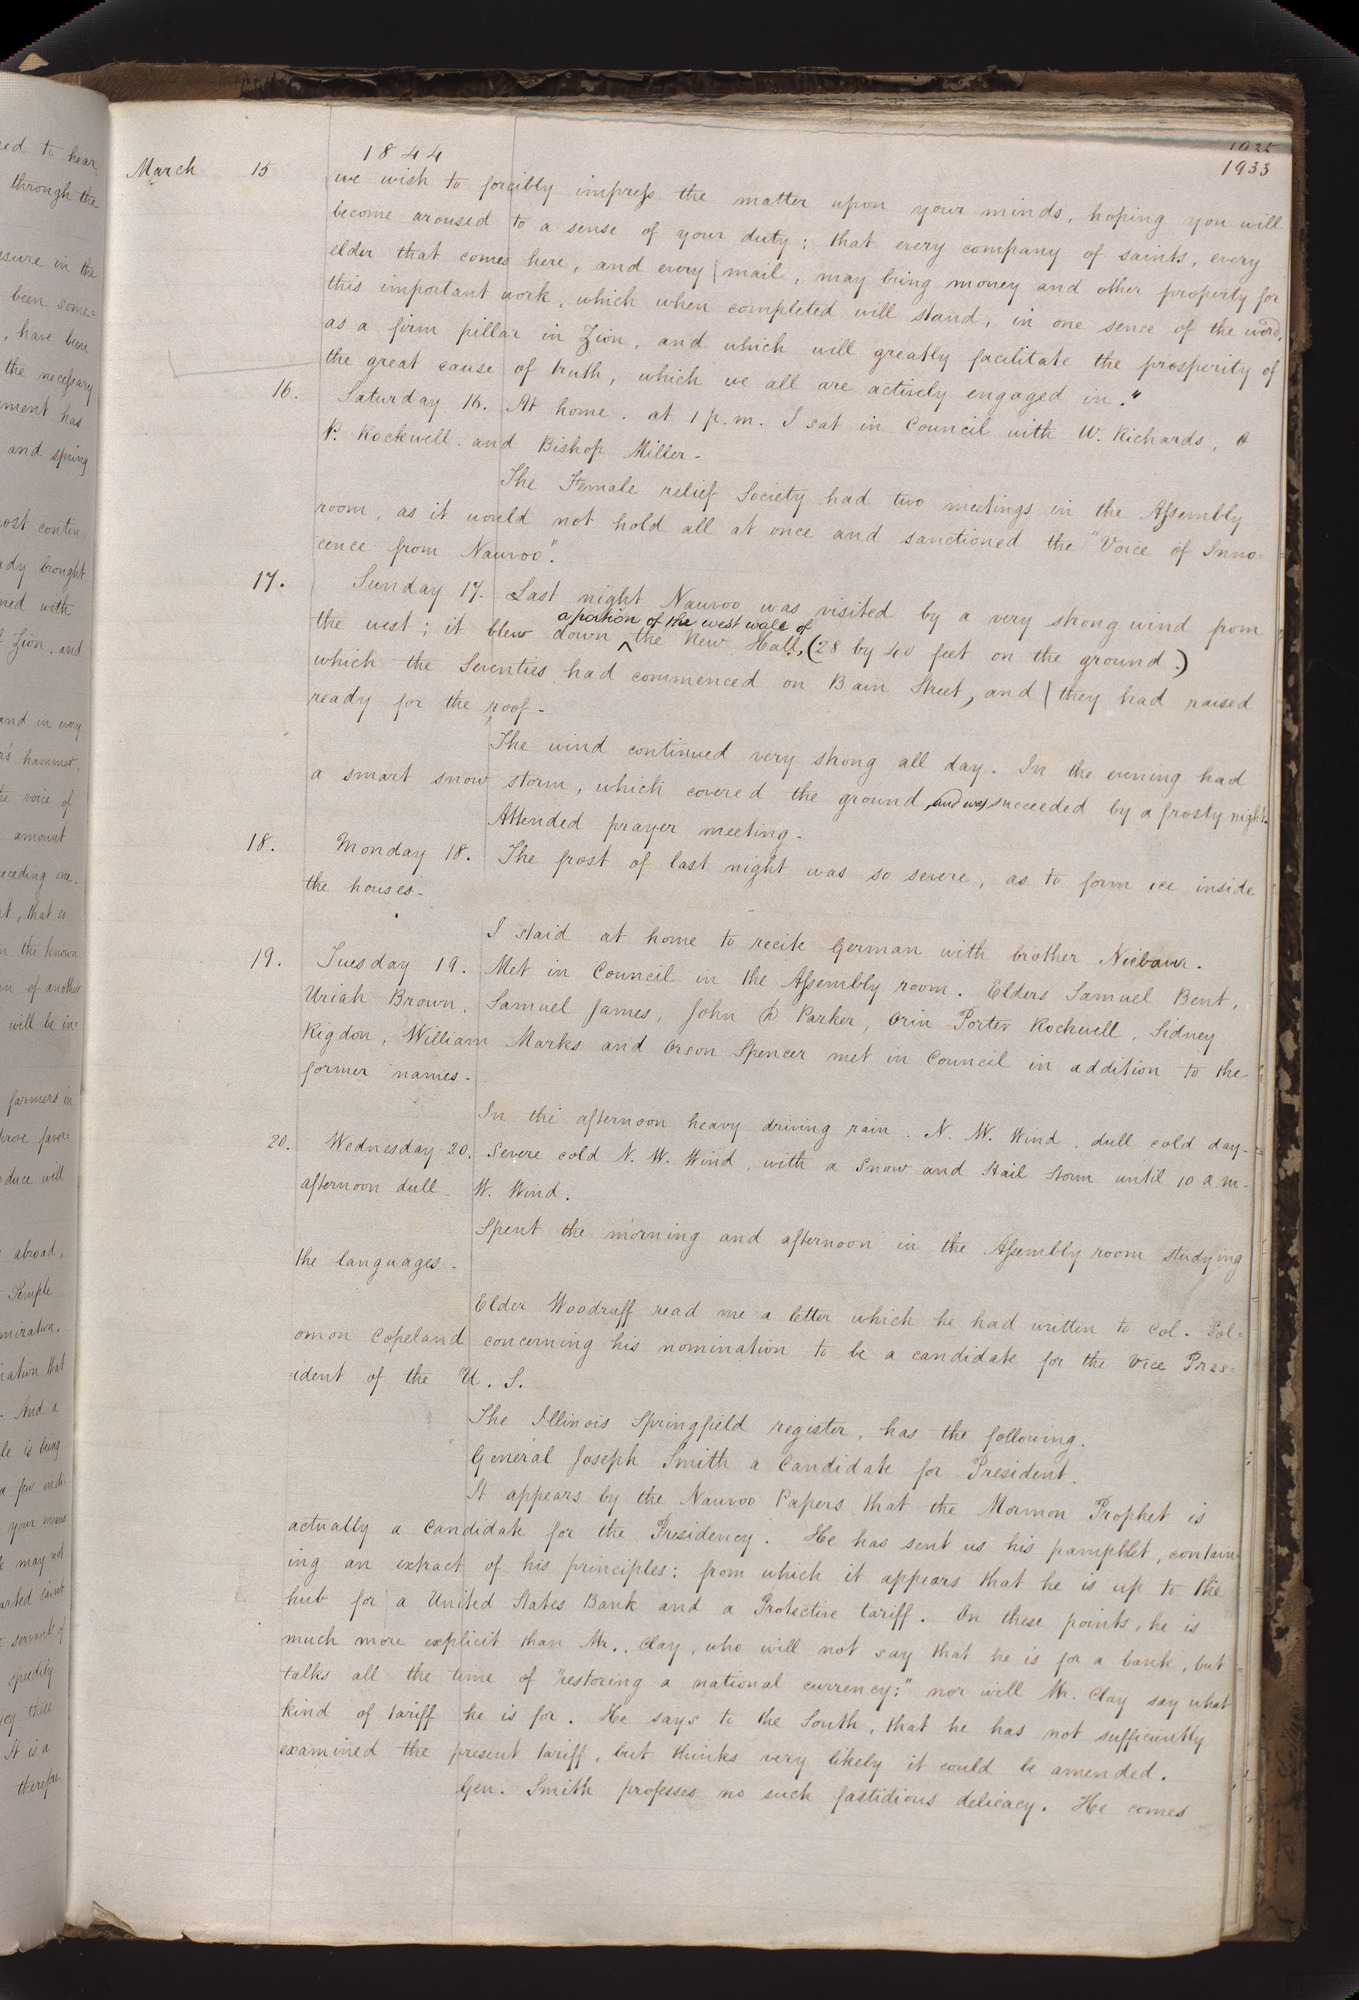 1844
1933
March 15 we wish to forcibly impress the matter upon your minds, hoping you will
become aroused to a sense of your duty; that every company of saints, every
elder that comes here, and every mail, may bring money and other property for
this important work, which when completed will stand, in one sence of the word,
as a firm pillar in Zion, and which will greatly facilitate the prosperity of
the great cause of truth, which we all are actively engaged in."
16. Saturday 16. At home. at 1 p.m. I sat in Council with W. Richards, O
P. Rockwell and Bishop Miller-
The Female relief Society had two meetings in the Assembly
room, as it would not hold all at once and sanctioned the "Voice of Inno-
cence from Nauvoo".
17. Sunday 17. Last night Nauvoo was visited by a very strong wind from
a portion of the west wall of
the west; it blew down ^ the New Hall, (28 by 40 feet on the ground.)
which the Seventies had commenced on Bain Street, and they had raised
ready for the roof-
The wind continued very strong all day. In the evening had
a smart snow storm, which covered the ground, and was succeeded by a frosty night.
Attended prayer meeting-
18. Monday 18. The frost of last night was so severe, as to form ice inside
the houses-
I staid at home to recite German with brother Neibaur.
19. Tuesday 19. Met in Council in the Assembly room. Elders Samuel Bent,
Uriah Brown, Samuel James, John D Parker, Orin Porter Rockwell, Sidney
Rigdon, William Marks and Orson Spencer met in Council in addition to the
former names-
In the afternoon heavy driving rain. N. W. Wind. dull cold day-
20. Wednesday 20. Severe cold N. W. Wind, with a Snow and Hail Storm until 10 a.m-
afternoon dull- W. Wind.
Spent the morning and afternoon in the Assembly room studying
the languages-
Elder Woodruff read me a letter which he had written to Col. Sol=
omon Copeland concerning his nomination to be a candidate for the Vice Pres=
ident of the U. S.
The Illinois Springfield register, has the following.
General Joseph Smith a Candidate for President.
It appears by the Nauvoo Papers that the Mormon Prophet is
actually a candidate for the Presidency. He has sent us his pamphlet, contain-
ing an extract of his principles; from which it appears that he is up to the
hub for a United States Bank and a Protective tariff. On these points, he is
much more explicit than Mr. Clay, who will not say that he is for a bank, but
talks all the time of "restoring a national currency;" nor will Mr. Clay say what
kind of tariff he is for. He says to the South, that he has not sufficiently
examined the present tariff, but thinks very likely it could be amended.
Gen. Smith professes no such fastidious delicacy. He comes